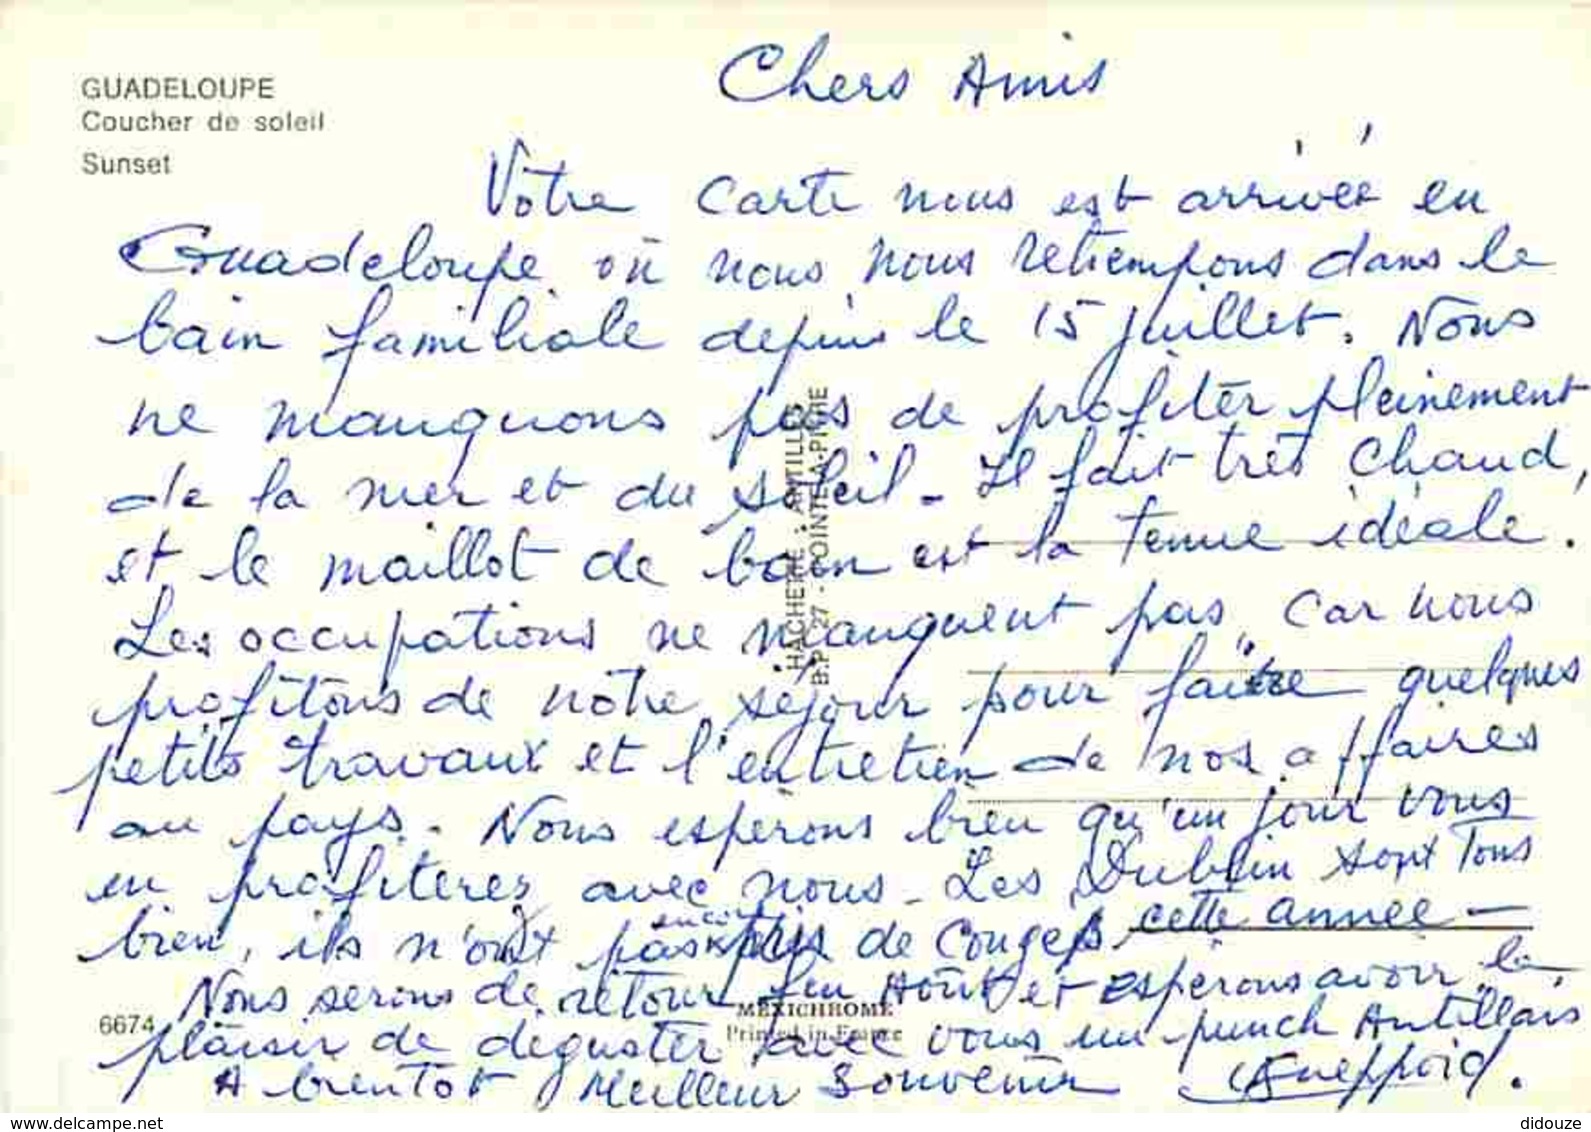 GUADELOUPE
Coucher de soleil
Sunset
Chers Amis
Votre carte nous est arrivée en
Guadeloupe où nous nous retrempons dans le
bain familiale depuis le 15 juillet. Nous
ne manquons pas de profiter pleinement
de la mer et du soleil. Il fait très chaud,
et le maillot de bain est la tenue idéale.
Les occupations ne manquent pas, car nous
profitons de notre séjour pour faire quelques
petits travaux et l'entretien de nos affaires
au pays. Nous espérons bien qu'un jour vous
en profiterez avec nous. Les Dublin sont Tous
bien, ils n'ont pas encore pris de Congés cette année —
Nous serons de retour fin Août et espérons avoir le
plaisir de déguster avec vous un punch Antillais
A bientôt Meilleur Souvenir
HACHETTE - ANTILLES
B.P. 27 - POINTE-A-PITRE
6674
MEXICHROME
Printed in France
delcampe.net
didouze